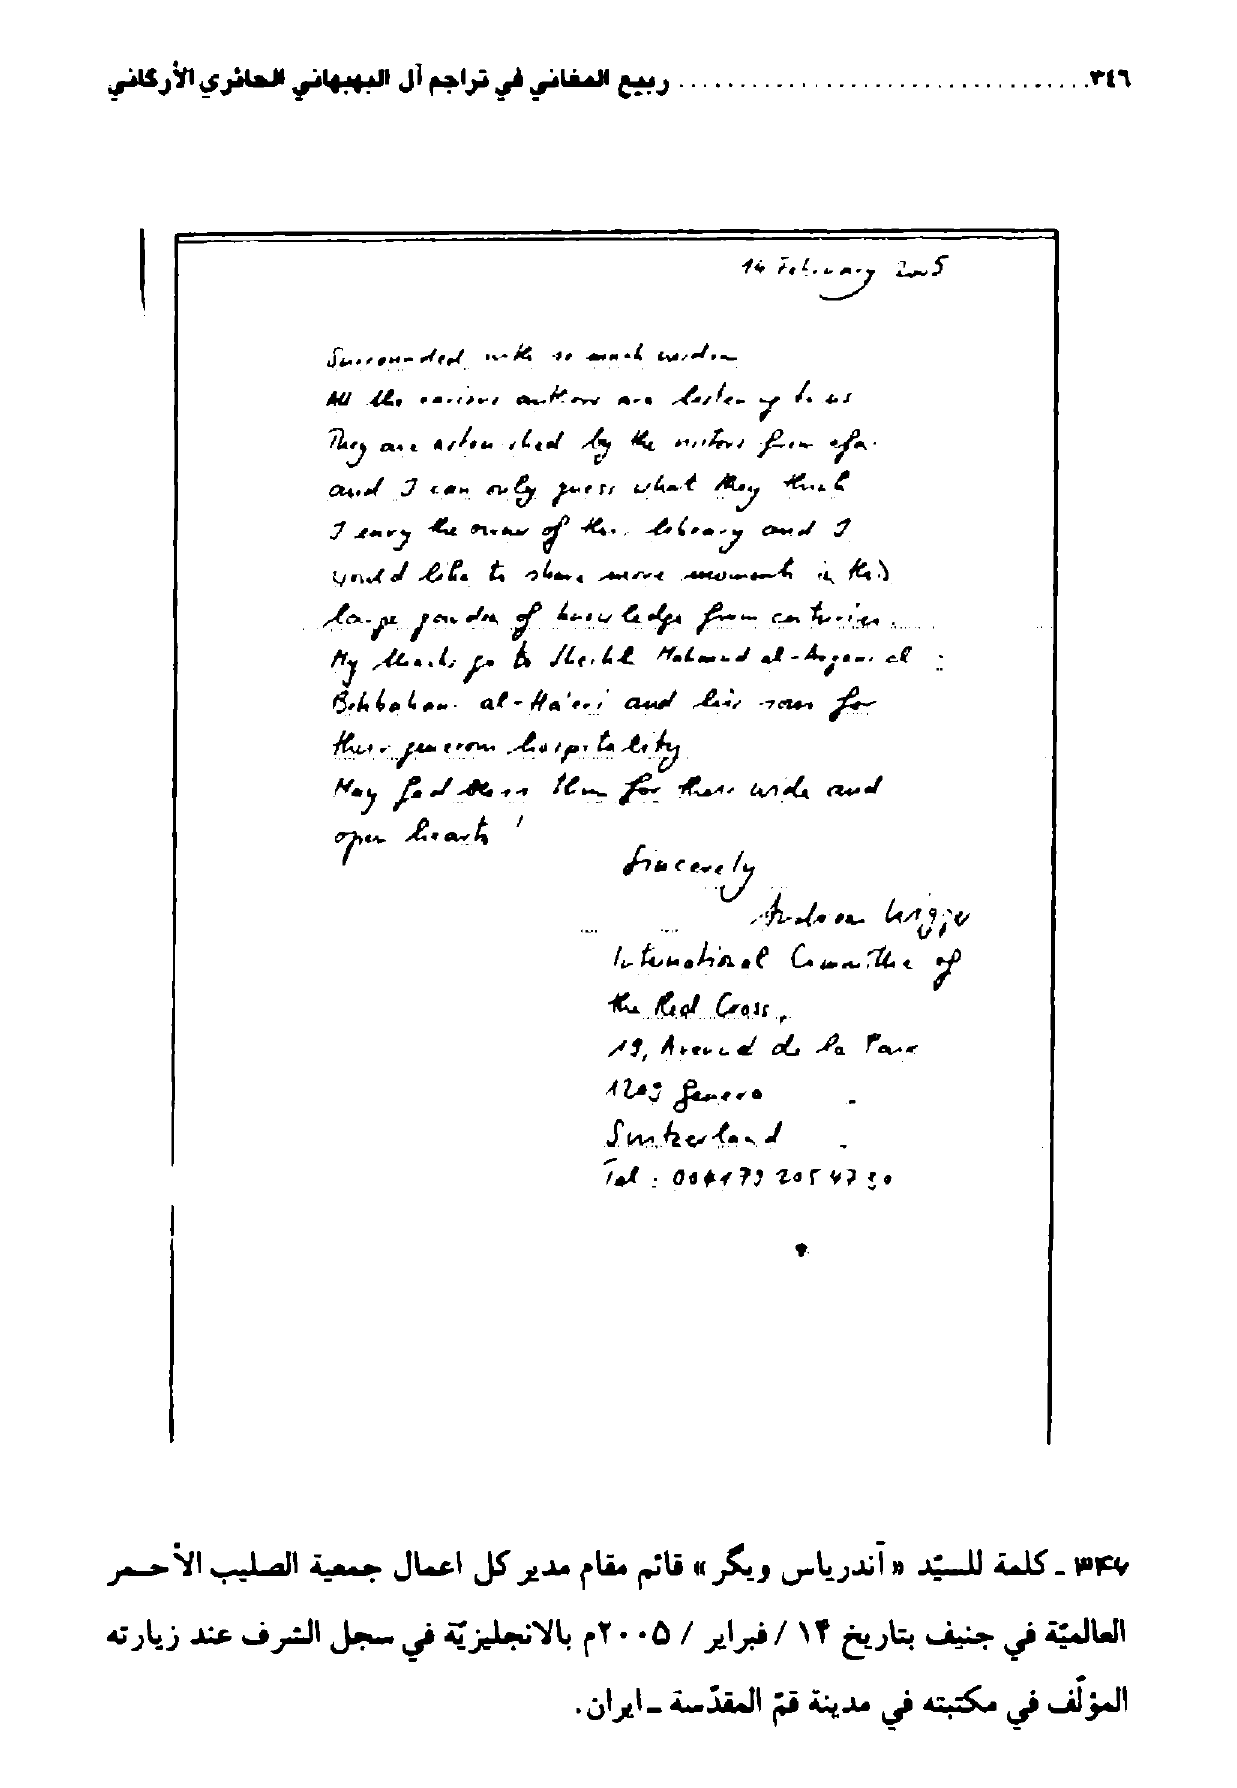 ٣٤٦ ........ ربيع المغاني في تراجم آل البهبهاني الحائري الأركاني
14 February 2005
Surrounded with so much wisdom
All the various authors are listening to us
They are astonished by the visitors from afar
and I can only guess what they think
I envy the owner of this library and I
would like to share more moments in this
large garden of knowledge from centuries.
My thanks go to Sheikh Mahmud al-Argani al
Behbahani al-Ha'eri and his sons for
their generous hospitality
May God bless them for their wide and
open hearts!
Sincerely
Andreas Wigger
International Committee of
the Red Cross,
19, Avenue de la Paix
1203 Geneva
Switzerland
Tel : 004179 205 47 30
٣٤٧ ـ كلمة للسيّد «آندرياس ويگر» قائم مقام مدير كل اعمال جمعية الصليب الأحمر
العالميّة في جنيف بتاريخ ١٤ / فبراير / ٢٠٠٥م بالانجليزيّة في سجل الشرف عند زيارته
المؤلّف في مكتبته في مدينة قمّ المقدّسة ـ ايران.